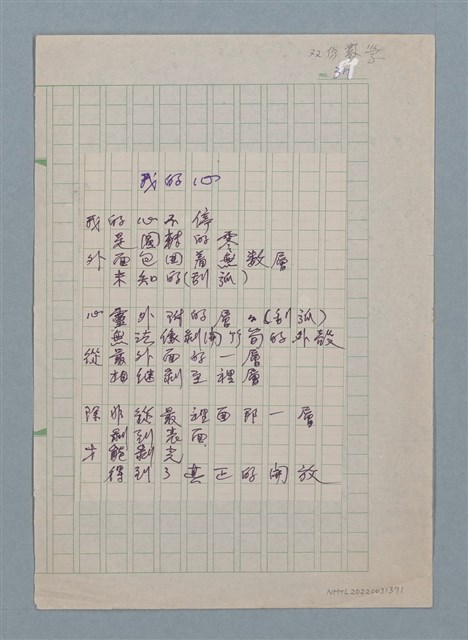 双份數學
我的心
我的心不停
是圓轉的零
外面包圍著無數層
未知的(刮弧)
心靈外附的層々(刮弧)
無法像剝開竹筍的外殼
從最外面的一層
相继剝至裡層
除非從最裡面那一層
剝到表面
才能剝光
得到了真正的開放
NMTL20220031371